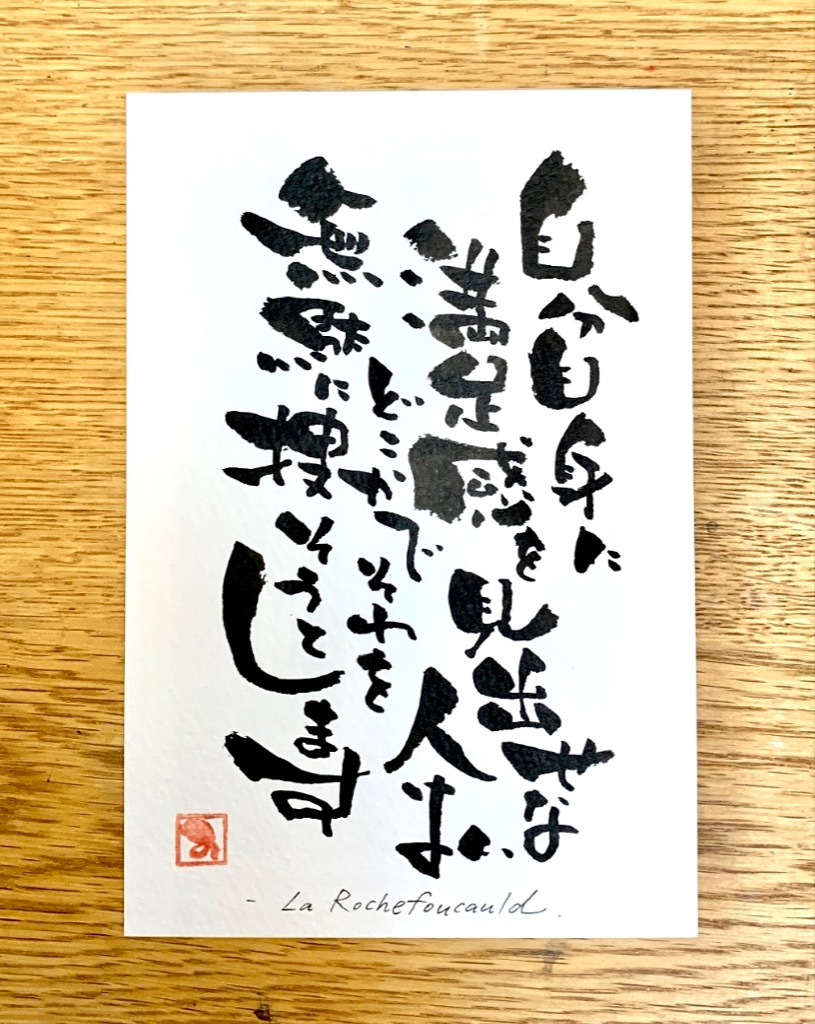 自分自身に
満足感を見出せない
人は
どこかでそれを
無駄に捜そうとします
- La Rochefoucauld.